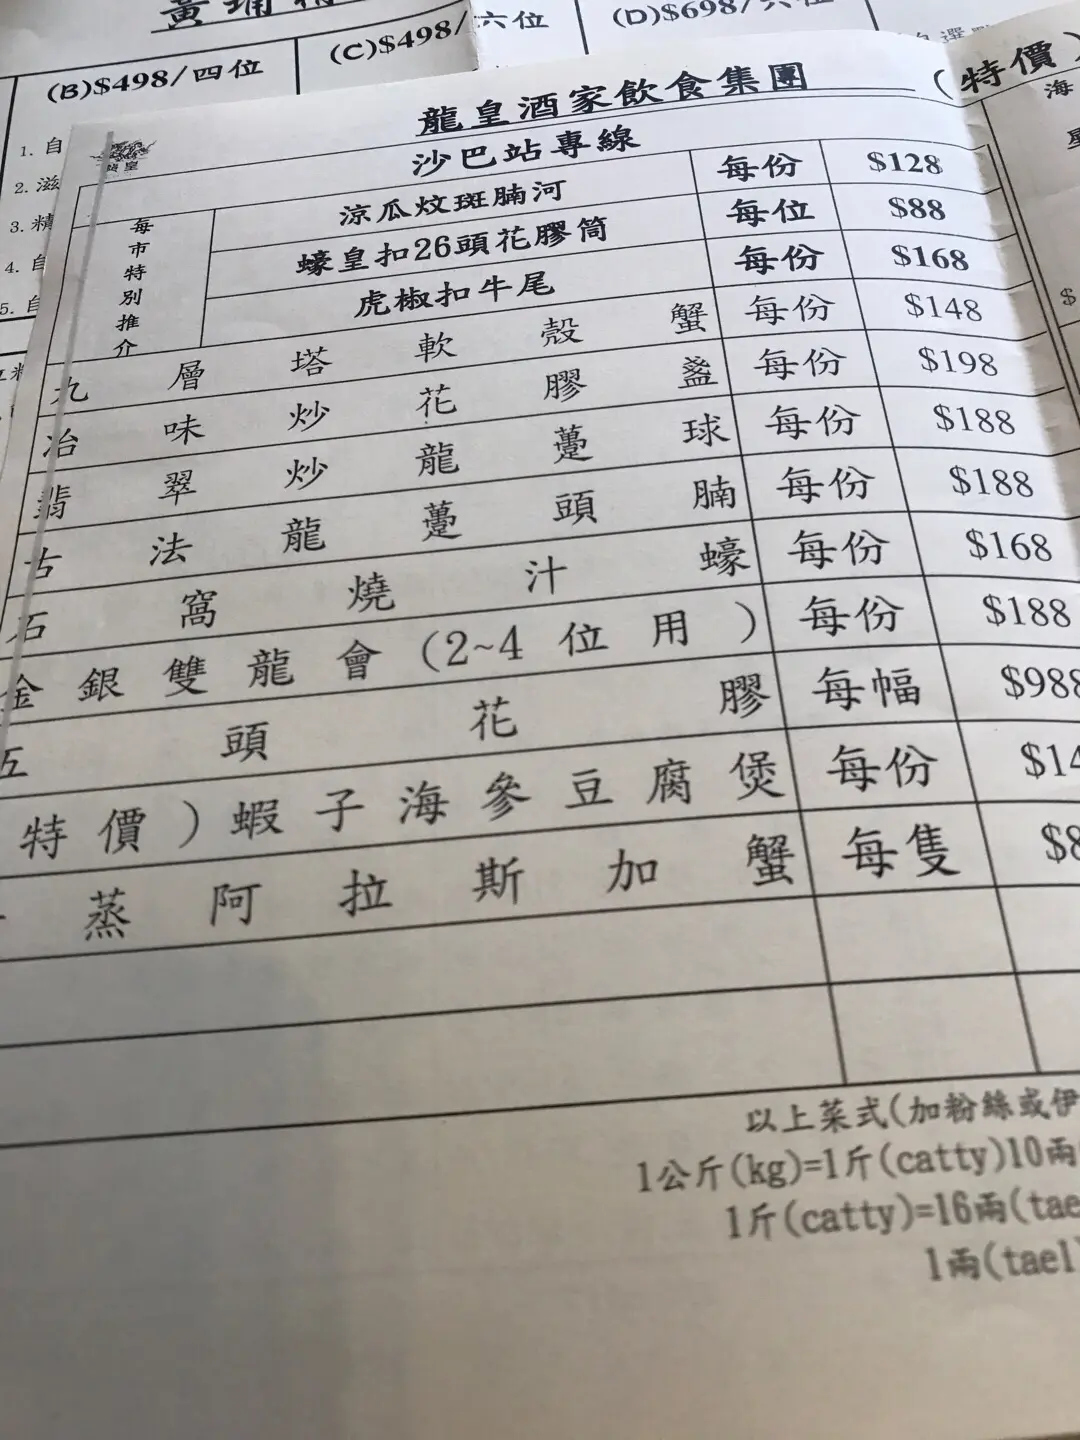 黃埔
(B)$498/四位
(C)$498/六位
(D)$698/六位
1. 自
2. 滋
3. 精
4. 自
5. 自
龍皇酒家飲食集團
(特價)
龍皇
沙巴站專線
每市特別推介
涼瓜炆斑腩河 每份 $128
蠔皇扣26頭花膠筒 每位 $88
虎椒扣牛尾 每份 $168
九層塔軟殼蟹 每份 $148
冶味炒花膠盞 每份 $198
翡翠炒龍躉球 每份 $188
古法龍躉頭腩 每份 $188
石窩燒汁蠔 每份 $168
金銀雙龍會(2~4位用) 每份 $188
五頭花膠 每幅 $988
特價)蝦子海參豆腐煲 每份 $14
蒸阿拉斯加蟹 每隻 $8
以上菜式(加粉絲或伊
1公斤(kg)=1斤(catty)10兩
1斤(catty)=16兩(tae
1兩(tael)
海
$